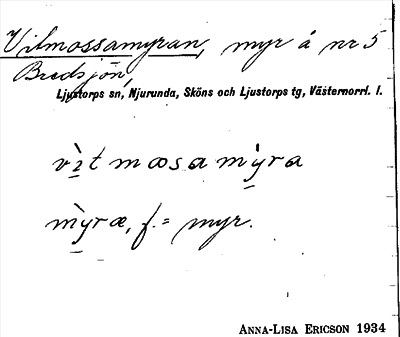 Vilmossamyran, myr å nr 5
Bredsjön,
Ljustorps sn, Njurunda, Sköns och Ljustorps tg, Västernorrl. l.
vìtmosamyra
mỳræ, f. = myr.
ANNA-LISA ERICSON 1934